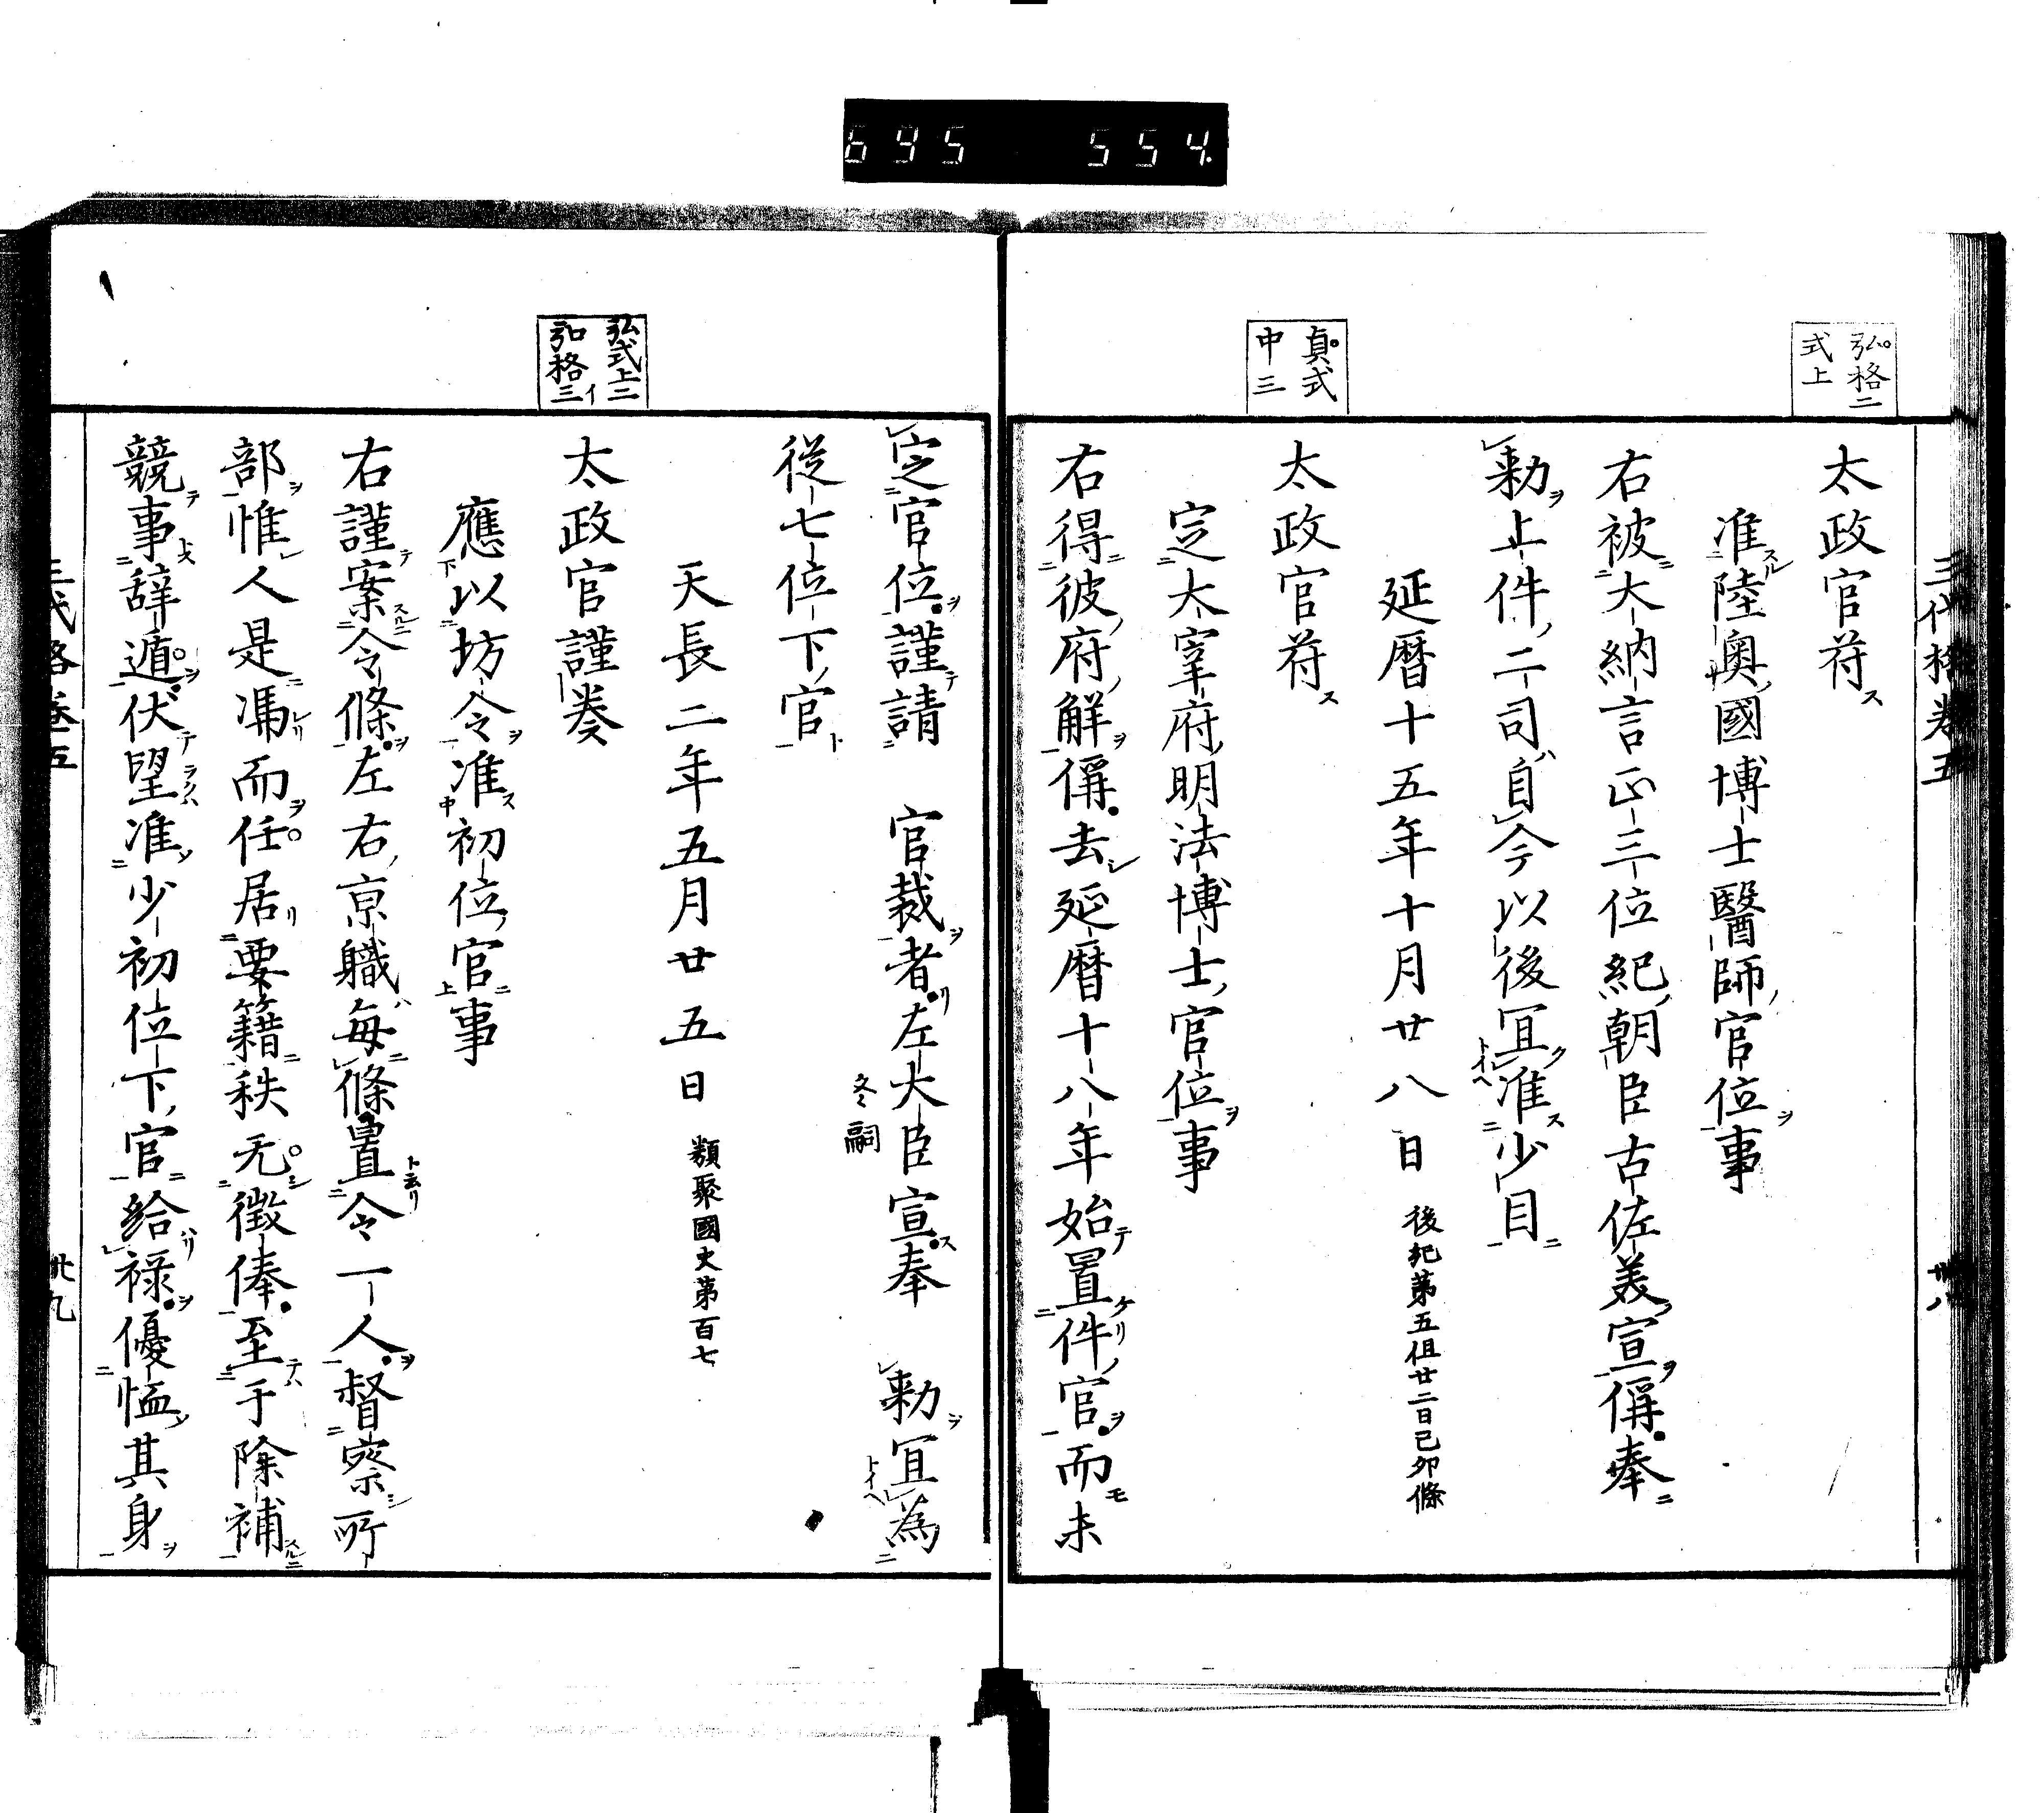 695 554
三代格卷五 卌八
弘格二
式上
太政官符
准陸奧國博士醫師官位事
右被大納言正三位紀朝臣古佐美宣偁奉
勅上件二司自今以後冝准少目
延曆十五年十月廿八日 後紀第五但廿二日己卯條
貞式
中三
太政官符
定大宰府明法博士官位事
右得彼府解偁去延曆十八年始置件官而未
定官位謹請 官裁者左大臣宣奉 勅冝為
冬嗣
從七位下官
天長二年五月廿五日 類聚國史第百七
弘式上二
弘格三イ
太政官謹奏
應以坊令准初位官事
右謹案令條左右京職每條置令一人督察所
部惟人是馮而任居要籍秩无徵俸至于除補
競事辞遁伏望准少初位下官給禄優恤其身
三代格卷五 卌九